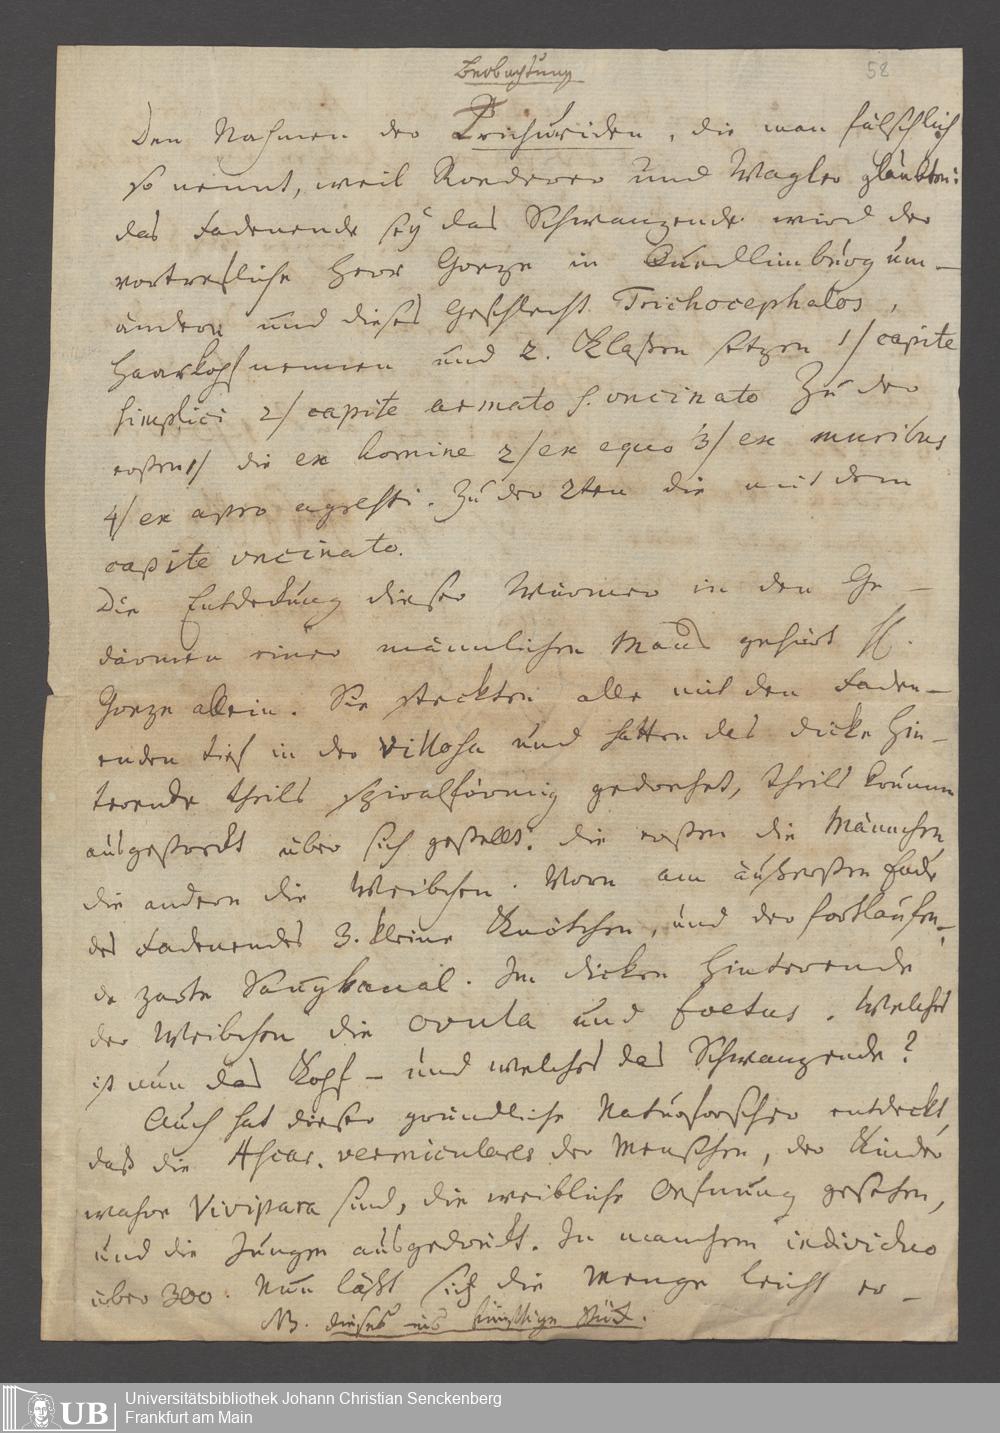 Beobachtung
58
Den Nahmen der Trichuriden, die man fälschlich
so nennt, weil Roederer und Wagler glaubten:
das Fadenende sey das Schwanzende wird der
vortrefliche Herr Goeze in Quedlinburg um-
ändern und dieses Geschlecht Trichocephalos,
Haarkopf nennen und 2. Klaßen setzen 1/ capite
simplici 2/ capite armato s. uncinato Zu der
ersten 1/ die ex homine 2/ ex equo 3/ ex muribus
4/ ex apro agresti. Zu der 2ten die mit dem
capite uncinato.
Die Entdeckung dieser Würmer in den Ge-
därmen einer männlichen Maus gehört H.
Goeze allein. Sie steckten alle mit den Faden-
enden tief in der villosa und hatten das dicke Hin-
terende theils spiralförmig gedrehet, theils krumm
ausgestreckt über sich gestellt: die ersten die Männchen
die andern die Weibchen. Vorn am äußersten Ende
des Fadenendes 3. kleine Knötchen, und der fortlaufen-
de zarte Saugkanal. Im dicken Hinterende
der Weibchen die ovula und foetus. Welches
ist nun das Kopf- und welches das Schwanzende?
Auch hat dieser gründliche Naturforscher entdeckt,
daß die Ascar. vermiculares der Menschen, der Kinder
wahre Vivipara sind, die weibliche Oefnung gesehen,
und die Jungen ausgedrückt. In manchem individuo
über 300. Nun läßt sich die Menge leicht er-
NB. dieses ins künftige Stück.
UB
Universitätsbibliothek Johann Christian Senckenberg
Frankfurt am Main